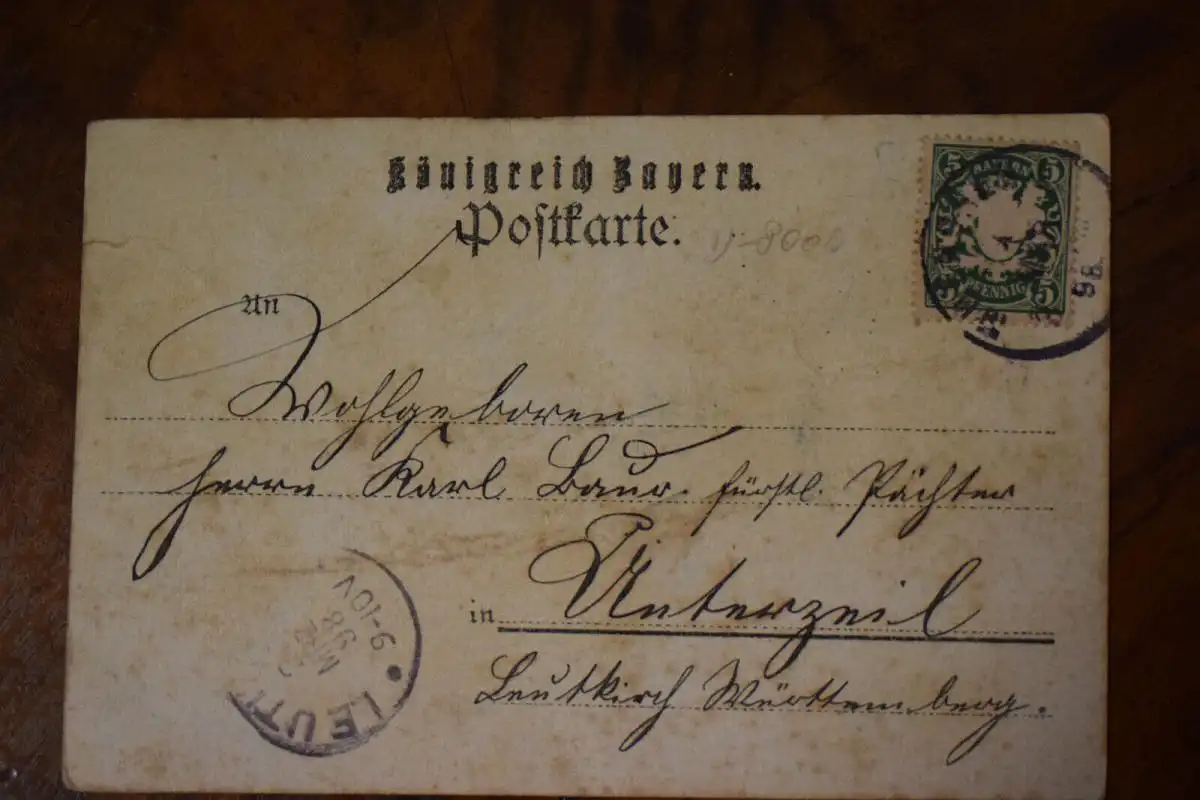 Königreich Bayern.
Postkarte.
5 BAYERN 5
PFENNIG 5
98
An
Wohlgeboren
Herrn Karl Baur. fürstl. Pächter
in Unterzeil
Leutkirch Württemberg.
9-10V
98
MRZ
LEUT